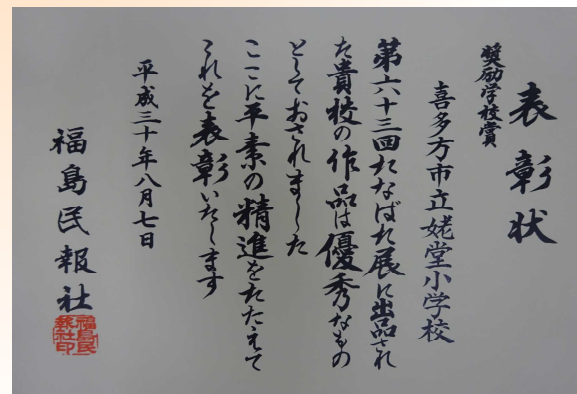 表彰状
奨励学校賞
喜多方市立姥堂小学校
第六十三回たなばた展に出品され
た貴校の作品は優秀なもの
としておされました
ここに平素の精進をたたえて
これを表彰いたします
平成三十年八月七日
福島民報社
福島民
報社印